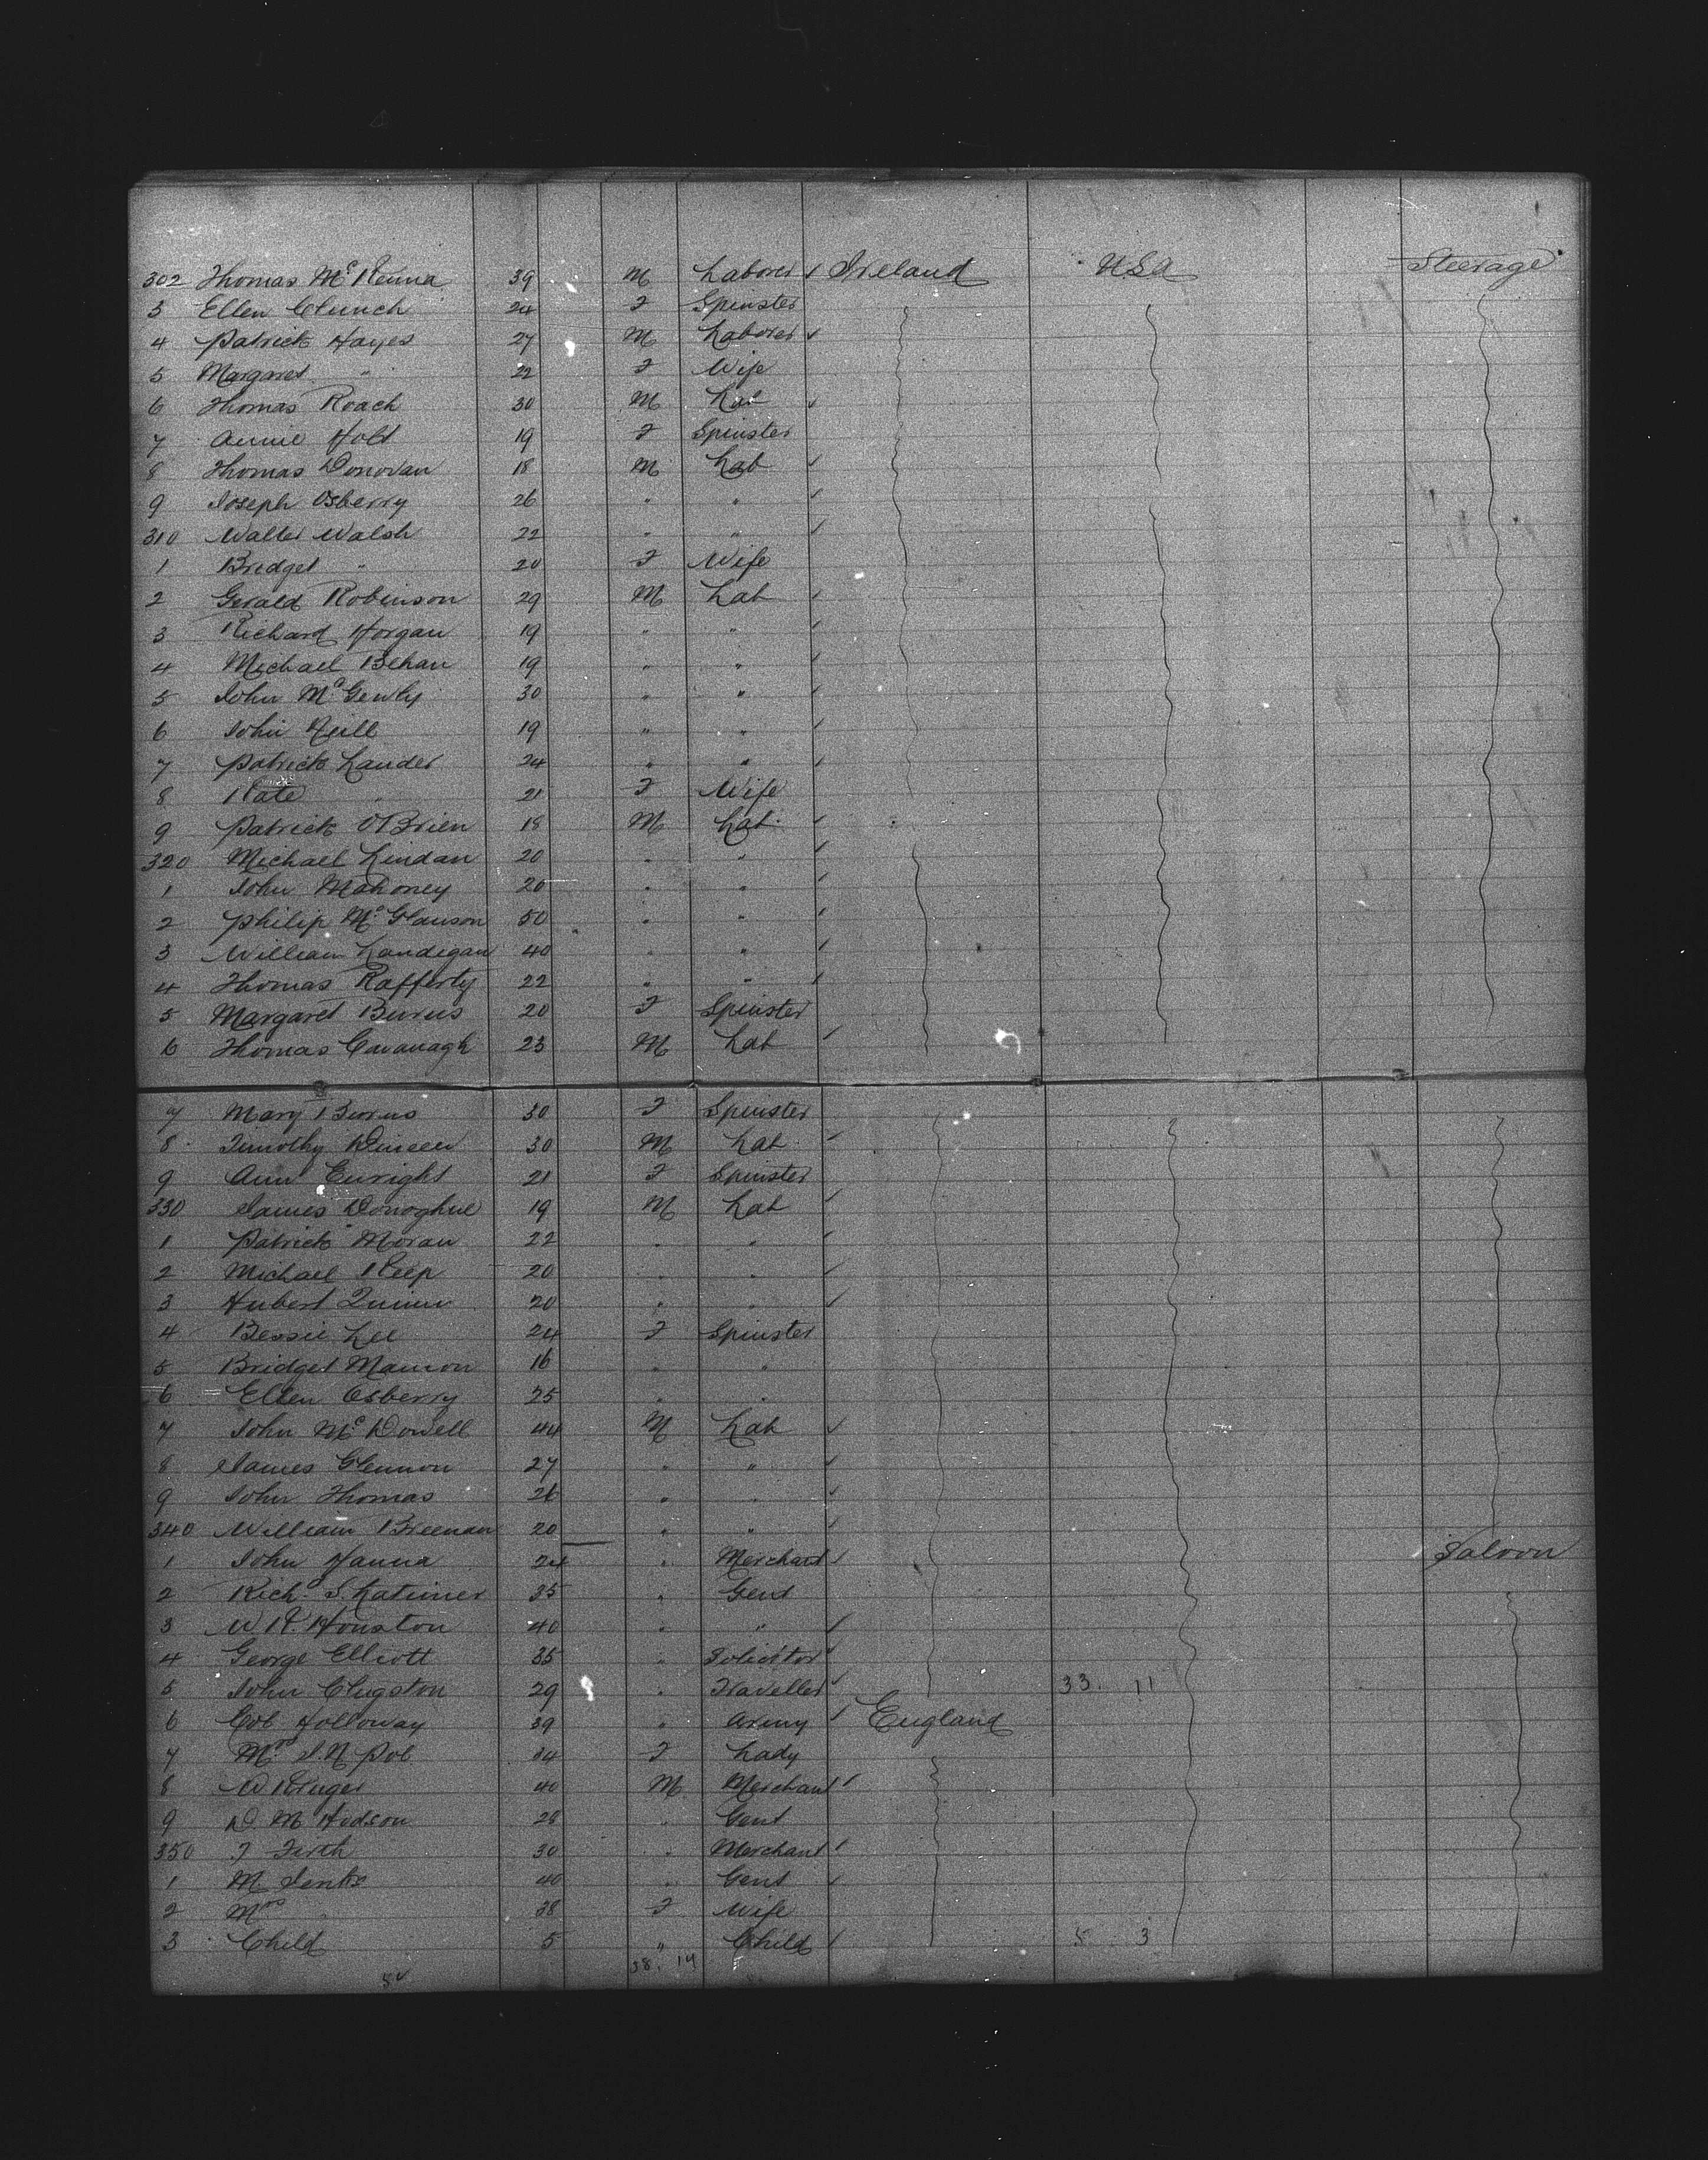 302 Thomas McKenna 39 M Laborer / Ireland U.S.A Steerage
3 Ellen Clunch 24 F Spinster
4 Patrick Hayes 27 M Laborer ✓
5 Margaret " 22 F Wife
6 Thomas Roach 30 M Lab ✓
7 Annie Holt 19 F Spinster
8 Thomas Donovan 18 M Lab ✓
9 Joseph Osberry 26 " " ✓
310 Walter Walsh 22 " " ✓
1 Bridget " 20 F Wife
2 Gerald Robinson 29 M Lab ✓
3 Richard Horgan 19 " " ✓
4 Michael Behan 19 " " ✓
5 John 30 " " ✓
6 John Neill 19 " " ✓
7 Patrick Lander 24 " " ✓
8 Kate " 21 F Wife
9 Patrick O'Brien 18 M Lab ✓
320 Michael Lindan 20 " " ✓
1 John Mahoney 20 " " ✓
2 Philip Mc Glauson 50 " " ✓
3 William Landigan 40 " " ✓
4 Thomas Rafferty 22 " " ✓
5 Margaret Burns 20 F Spinster
6 Thomas Cavanagh 23 M Lab ✓
7 Mary Burns 30 F Spinster
8 Timothy Dineen 30 M Lab ✓
9 Ann Enright 21 F Spinster
330 James Donoghue 19 M Lab ✓
1 Patrick Moran 22 " " ✓
2 Michael Keep 20 " " ✓
3 Hubert Quinn 20 " " ✓
4 Bessie Lee 24 F Spinster
5 Bridget Mannon 16 " "
6 Ellen Osberry 25 " "
7 John McDowell 44 M Lab ✓
8 James Glennon 27 " " ✓
9 John Thomas 26 " " ✓
340 William Breenan 20 " " ✓
1 John Hanna 24 " Merchant ✓ Saloon
2 Richd S. Latimer 35 " Gent
3 W. R. Houston 40 " " ✓
4 George Elliott 35 " Solicitor ✓
5 John Clugston 29 " Traveller ✓ 33. 11
6 Col Holloway 39 " Army ✓ England
7 Mrs J. N 34 F Lady
8 W Kruger 40 M Merchant ✓
9 D M Hodson 28 " Gent
350 F Firth 30 " Merchant ✓
1 M Jenks 40 " Gent ✓
2 Mrs " 38 F Wife
3 Child 5 " Child ✓ 5 3
38. 14